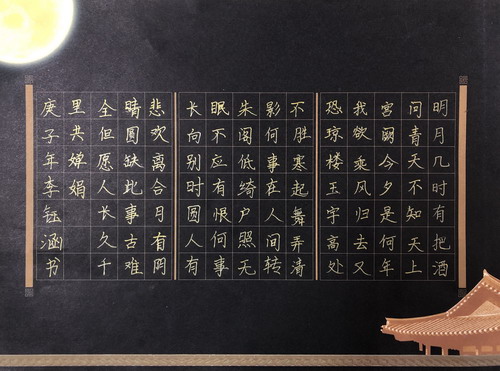 明月几时有把酒
问青天不知天上
宫阙今夕是何年
我欲乘风归去又
恐琼楼玉宇高处
不胜寒起舞弄清
影何事在人间转
朱阁低绮户照无
眠不应有恨何事
长向别时圆人有
悲欢离合月有阴
晴圆缺此事古难
全但愿人长久千
里共婵娟
庚子年李钰涵书